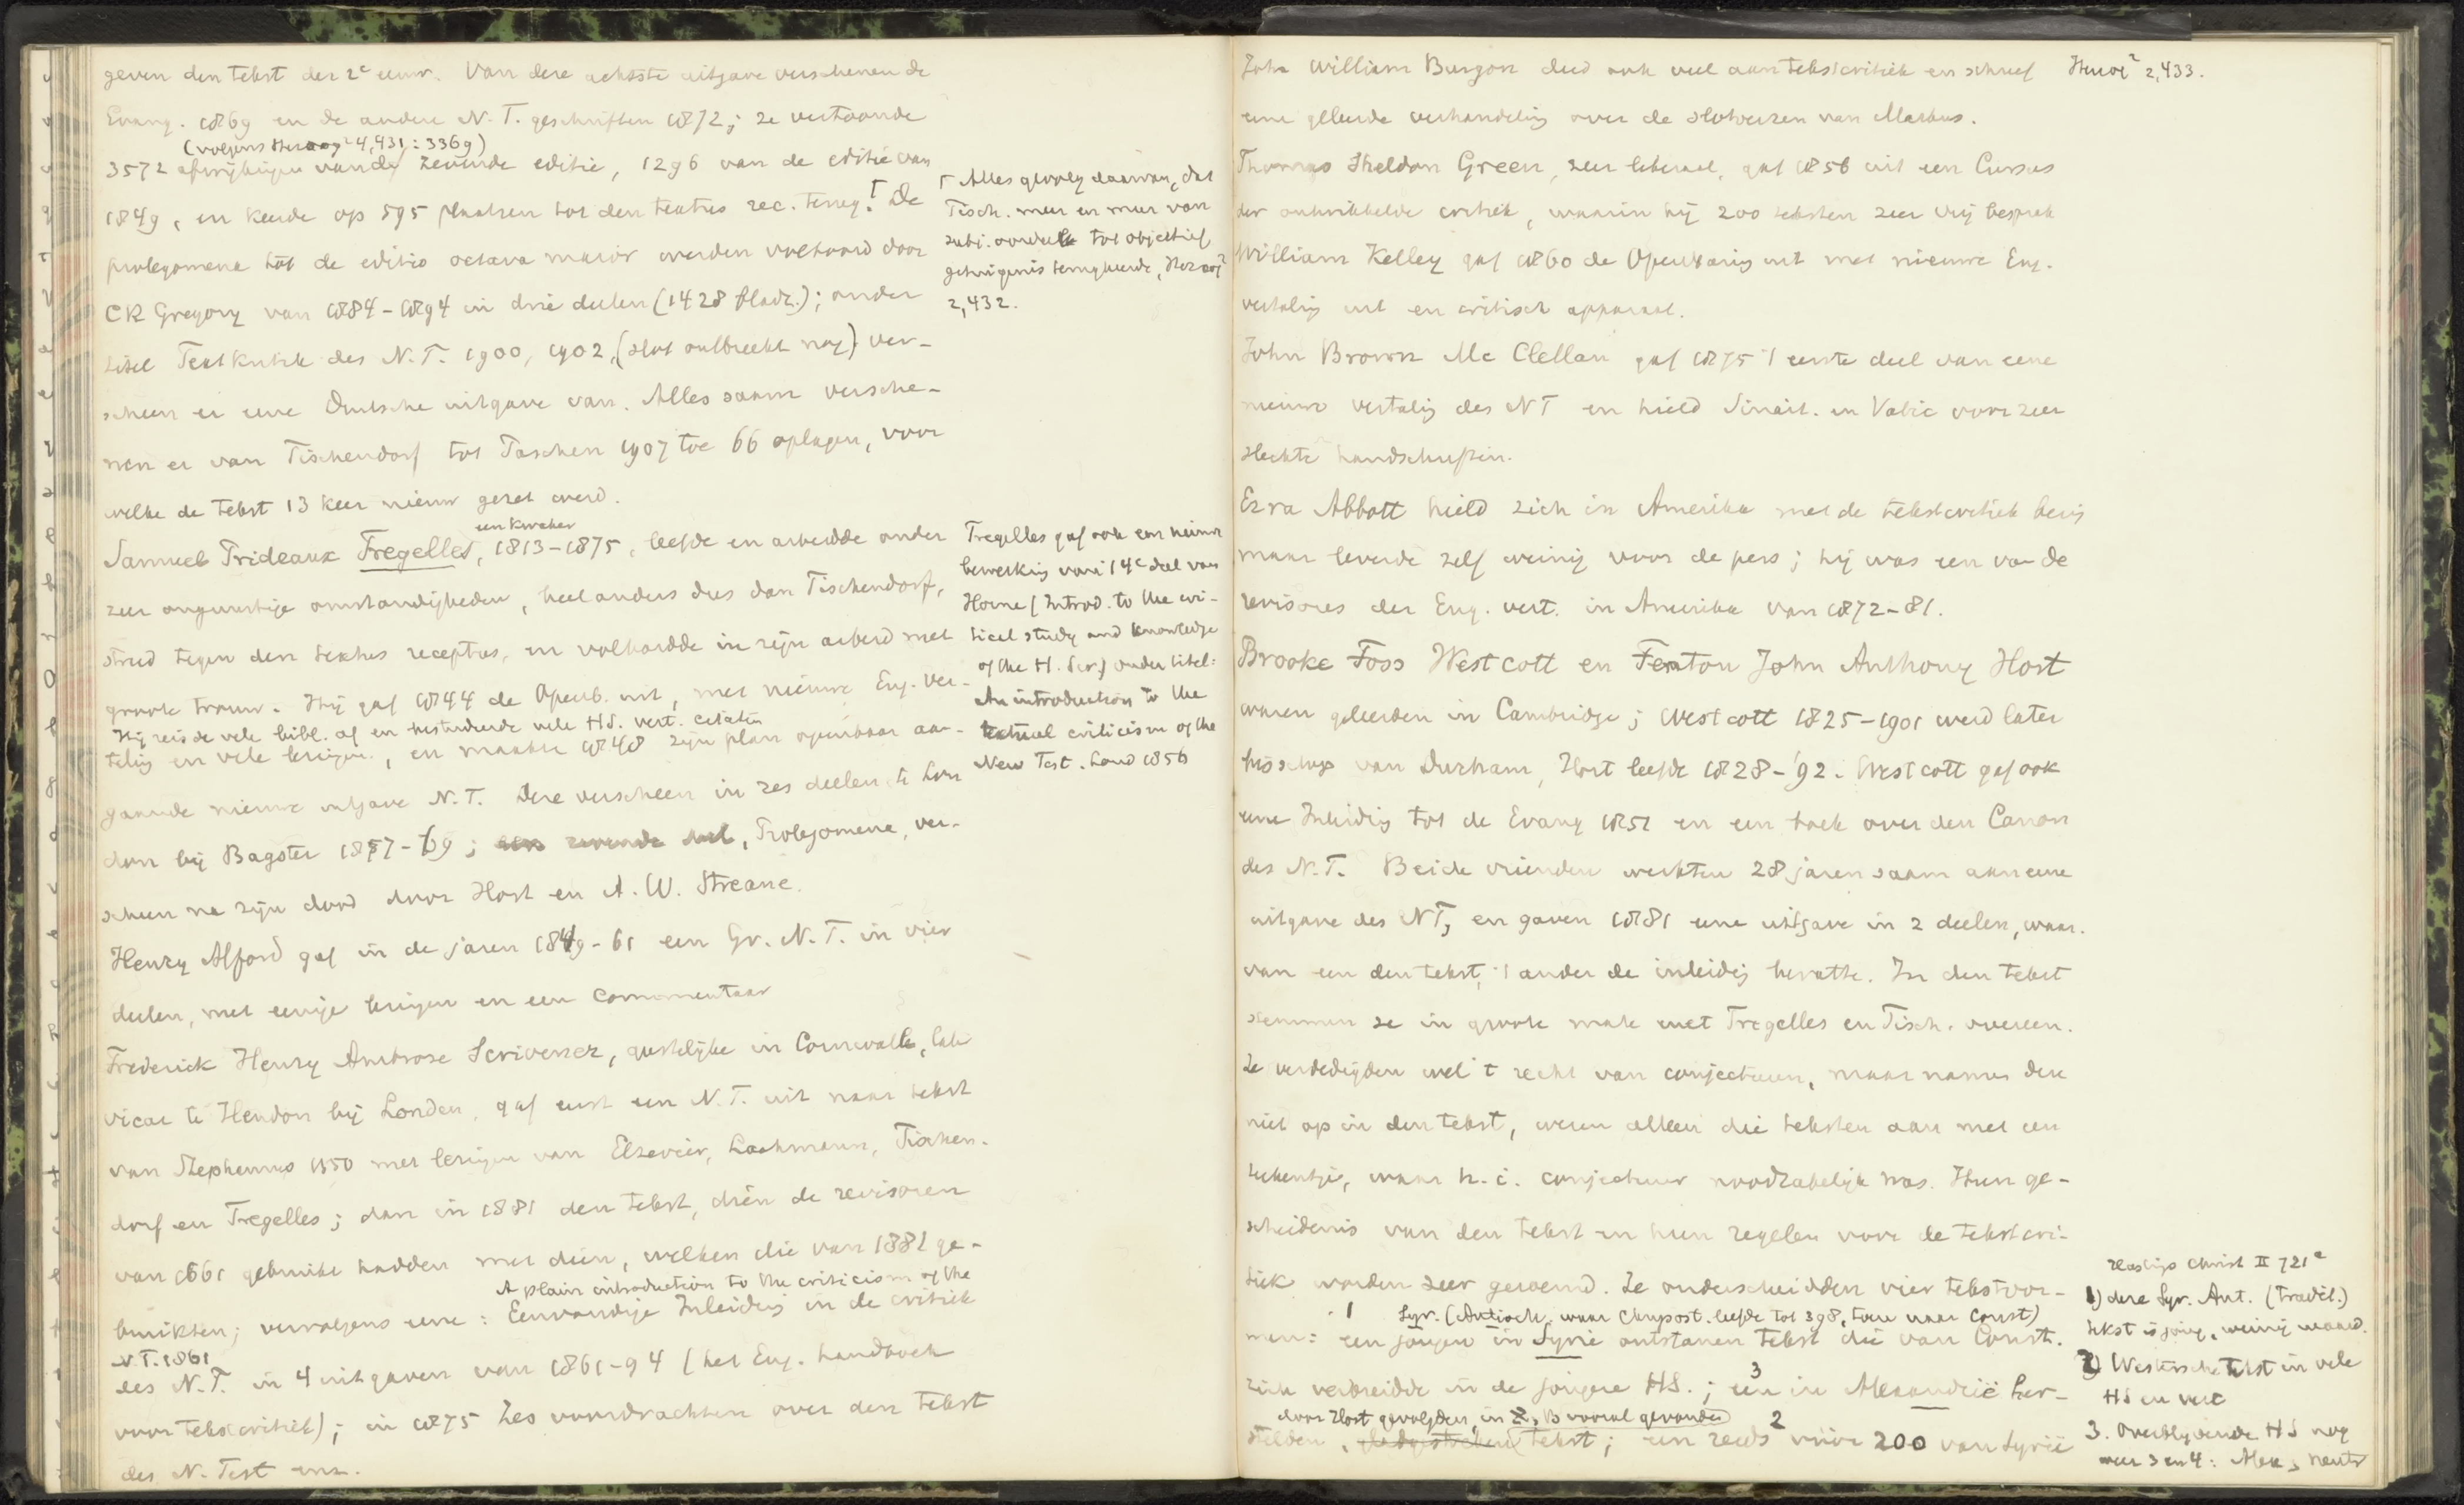 geven den tekst der 2e eeuw. Van deze achtste uitgave verschenen de
Evang. 1869 en de andere N.T. geschriften 1872; ze vertoonde
(volgens Herzog² 4,431: 3369)
3572 afwijkingen van de zevende editie, 1296 van de editie van
1849, en keerde op 595 plaatsen tot den textus rec. terug.⌈ De
prolegomena tot de editio octava maior werden voltooid door
CR Gregory van 1884-1894 in drie deelen (1428 bladz.); onder
titel Textkritik des N.T. 1900, 1902, (slot ontbreekt nog) ver-
scheen er eene Duitsche uitgave van. Alles saam versche-
nen er van Tischendorf tot Taschen 1907 toe 66 oplagen, voor
welke de tekst 13 keer nieuw gezet werd.
een kwaker
Samuel Prideaux Tregelles, 1813-1875, leefde en arbeidde onder
zeer ongunstige omstandigheden, heel anders dus dan Tischendorf,
streed tegen den textus receptus, en volhardde in zijn arbeid met
groote trouw. Hij gaf 1844 de Openb. uit, met nieuwe Eng. ver-
Hij reisde vele bibl. af en bestudeerde vele HS. vert. citaten
taling en vele lezingen, en maakte 1848 zijn plan openbaar aan-
gaande nieuwe uitgave N.T. Deze verscheen in zes deelen te Lon
don bij Bagster 1857-69; een zevende deel, Prolegomena, ver-
scheen na zijn dood door Hort en A. W. Streane.
Henry Alford gaf in de jaren 1849-61 een Gr. N.T. in vier
deelen, met eenige lezingen en een commentaar
Frederick Henry Ambrose Scrivener, geestelijke in Cornwall, later
vicar te Hendon bij Londen, gaf eerst een N.T. uit naar tekst
van Stephanus 1550 met lezingen van Elzevier, Lachmann, Tischen-
dorf en Tregelles; dan in 1881 den tekst, dien de revisoren
van 1661 gebruikt hadden met dien, welken die van 1881 ge-
A plain introduction to the criticism of the
bruikten; vervolgens eene: Eenvoudige Inleiding in de critiek
N.T. 1861
des N.T. in 4 uitgaven van 1861-94 (het Eng. handboek
voor tekstcritiek); in 1875 Zes voordrachten over den tekst
des N. Test enz.
⌈ Alles gevolg daarvan, dat
Tisch. meer en meer van
subj. oordeel tot objectief
getuigenis terugkeerde, Herzog²
2,432.
Tregelles gaf ook een nieuwe
bewerking van 't 4e deel van
Horne (Introd. to the cri-
tical study and knowledge
of the H. Scr.) onder titel:
An introduction to the
textual criticism of the
New Test. Lond 1856
John William Burgon deed ook veel aan tekstcritiek en schreef
Herzog² 2,433.
eene geleerde verhandeling over de slotverzen van Markus.
Thomas Sheldon Green, zeer liberaal, gaf 1856 uit een Cursus
der ontwikkelde critiek, waarin hij 200 teksten zeer vrij besprak
William Kelley gaf 1860 de Openbaring uit met nieuwe Eng.
vertaling uit en critisch apparaat.
John Brown Mc Clellan gaf 1875 't eerste deel van eene
nieuwe vertaling des NT en hield Sinait. en Vatic voor zeer
slechte handschriften.
Ezra Abbott hield zich in Amerika met de tekstcritiek bezig
maar leverde zelf weinig voor de pers; hij was een van de
revisores der Eng. vert. in Amerika van 1872-81.
Brooke Foss Westcott en Fenton John Anthony Hort
waren geleerden in Cambridge; Westcott 1825-1901 werd later
bisschop van Durham, Hort leefde 1828-'92. Westcott gaf ook
eene Inleiding tot de Evang 1851 en een boek over den Canon
des N.T. Beide vrienden werkten 28 jaren saam aan eene
uitgave des NT, en gaven 1881 eene uitgave in 2 deelen, waar-
van een den tekst, 't ander de inleiding bevatte. In den tekst
stemmen ze in groote mate met Tregelles en Tisch. overeen.
Ze verdedigden wel 't recht van conjecturen, maar namen deze
niet op in den tekst, wezen alleen die teksten aan met een
teekentje, waar h.i. conjectuur noodzakelijk was. Hun ge-
schiedenis van den tekst en hun regelen voor de tekstcri-
tiek worden zeer geroemd. Ze onderscheidden vier tekstvor-
1 Syr. (Antioch. waar Chrysost. leefde tot 398, toen naar Const)
men: een jongen in Syrië ontstanen tekst die van Const.
3
zich verbreidde in de jongere HS.; een in Alexandrië her-
door Hort gevolgden, in א, B vooral gevonden 2
stelden, tekst; een reeds vóór 200 van Syrië
Christ II 721a
1) deze Syr. Ant. (Tradit.)
tekst is jong, weinig waard.
2) Westersche tekst in vele
HS en vert
3. Overblijvende HS nog
weer 3 en 4: Alex, neutr